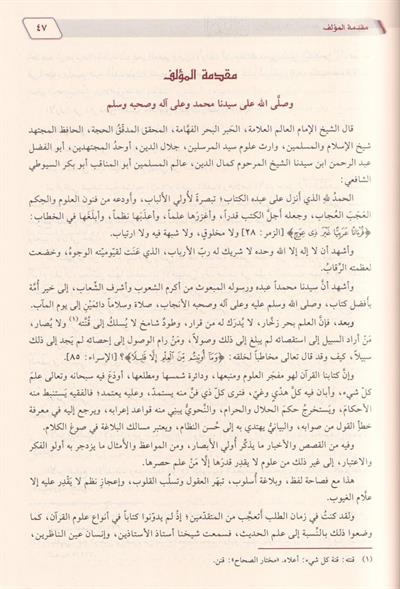 مقدمة المؤلف
٤٧
مقدمة المؤلف
وصلَّى الله على سيدنا محمد وعلى آله وصحبه وسلم
قال الشيخ الإمام العالم العلامة، الحَبر البحر الفهَّامة، المحقق المدقِّقُ الحجة، الحافظ المجتهد
شيخ الإسلام والمسلمين، وارث علوم سيد المرسلين، جلال الدين، أوحدُ المجتهدين، أبو الفضل
عبد الرحمن ابن سيدنا الشيخ المرحوم كمال الدين، عالم المسلمين أبو المناقب أبو بكر السيوطي
الشافعي:
الحمدُ للهِ الذي أنزل على عبده الكتاب؛ تبصرةً لأولي الألباب، وأودعه من فنون العلوم والحِكم
العَجَبَ العُجاب، وجعله أجلَّ الكتب قدراً، وأغزرَها علماً، وأعذبَها نظماً، وأبلغَها في الخطاب:
﴿قُرْءَانًا عَرَبِيًّا غَيْرَ ذِى عِوَجٍ﴾ [الزمر: ٢٨] ولا مخلوقٍ، ولا شبهة فيه ولا ارتياب.
وأشهد أن لا إله إلا الله وحده لا شريك له ربّ الأرباب، الذي عَنَت لقيّوميّته الوجوهُ، وخضعت
لعظمته الرِّقابُ.
وأشهد أنَّ سيدنا محمداً عبده ورسوله المبعوث من أكرم الشعوب وأشرف الشِّعاب، إلى خير أُمَّة
بأفضل كتاب، وصلى الله وسلم عليه وعلى آله وصحبه الأنجاب، صلاة وسلاماً دائمَيْن إلى يوم المآب.
وبعد، فإنَّ العلم بحر زخَّار، لا يُدرَك له من قرار، وطودٌ شامخ لا يُسلكُ إلى قُنَّته(١) ولا يُصار،
مَنْ أراد السبيل إلى استقصائه لم يبلغ إلى ذلك وصولاً، ومَنْ رام الوصول إلى إحصائه لم يَجد إلى ذلك
سبيلاً، كيف وقد قال تعالى مخاطباً لخلقه: ﴿وَمَآ أُوتِيتُم مِّنَ ٱلْعِلْمِ إِلَّا قَلِيلًا﴾؟ [الإسراء: ٨٥].
وإنَّ كتابنا القرآن لهو مفجّر العلوم ومنبعها، ودائرة شمسها ومطلعها، أودَعَ فيه سبحانه وتعالى علمَ
كلِّ شيء، وأبان فيه كلَّ هدْيٍ وغيّ، فترى كلَّ ذي فنٍّ منه يستمدُّ، وعليه يعتمد؛ فالفقيه يَستنبط منه
الأحكامَ، ويَستخرجُ حكمَ الحلال والحرام، والنَّحويُّ يبني منه قواعد إعرابه، ويرجع إليه في معرفة
خطأِ القول من صوابه، والبيانيُّ يهتدي به إلى حُسن النظام، ويعتبر مسالك البلاغة في صوغ الكلام.
وفيه من القصص والأخبار ما يذكِّر أُولي الأبصار، ومن المواعظ والأمثال ما يزدجر به أولو الفكر
والاعتبار، إلى غير ذلك من علوم لا يقدِر قدرَها إلَّا مَنْ علم حصرها.
هذا مع فصاحة لفظ، وبلاغة أُسلوب، تبهَر العقول وتسلُب القلوب، وإعجازِ نظم لا يَقْدِر عليه إلا
علَّام الغيوب.
ولقد كنتُ في زمان الطلب أَتعجَّب من المتقدِّمين؛ إذْ لم يدوّنوا كتاباً في أنواع علوم القرآن، كما
وضعوا ذلك بالنِّسبة إلى علم الحديث، فسمعت شيخنا أستاذ الأستاذين، وإنسان عين الناظرين،
(١) قنته: قنة كل شيء: أعلاه. «مختار الصحاح»: قنن.